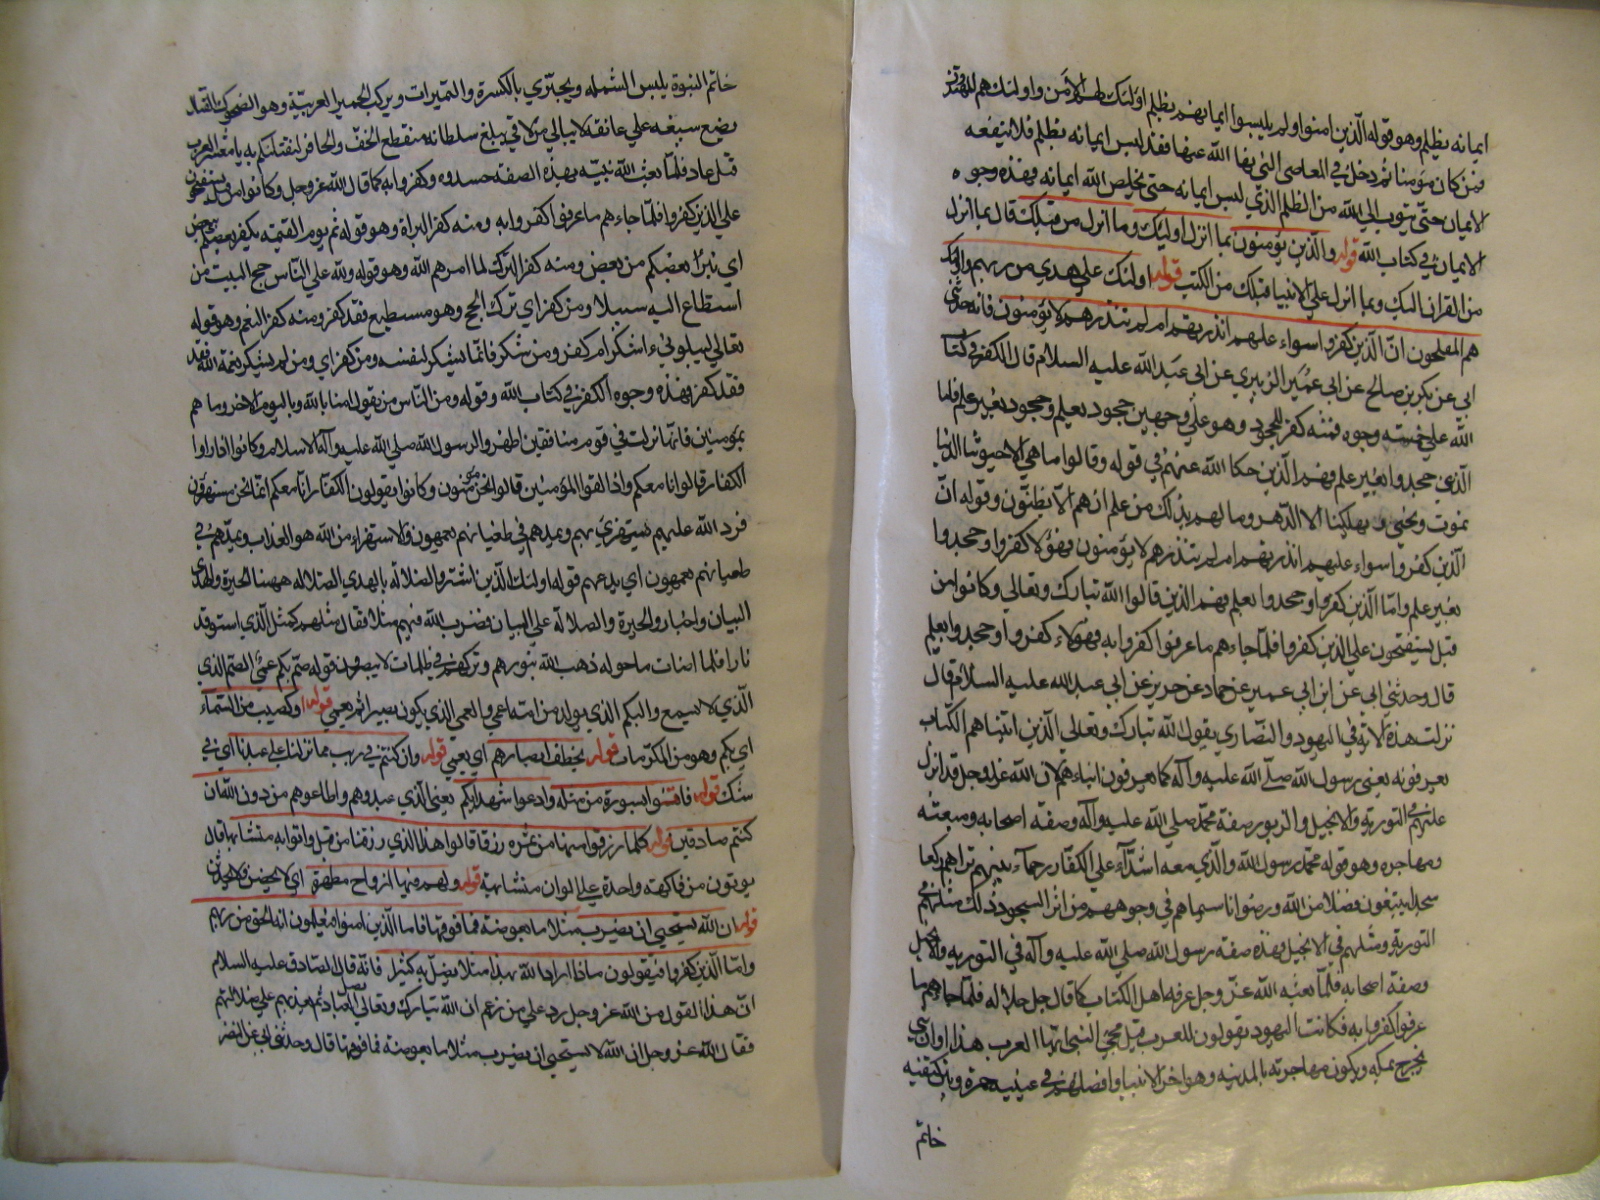 ايمانه بظلم وهو قوله الذين امنوا ولم يلبسوا ايمانهم بظلم اولئك لهم الامن واولئك هم المهتدون
فمن كان مؤمنا ثم دخل في المعاصي التي نها الله عنها فقد لبس ايمانه بظلم فلا ينفعه
الايمان حتى يتوب الى الله من الظلم الذي لبس ايمانه حتى يخلص الله ايمانه فهذه وجوه
الايمان في كتاب الله قوله والذين يؤمنون بما انزل اليك وما انزل من قبلك قال بما انزل
من القران اليك وبما انزل على الانبيا قبلك من الكتب قوله اولئك على هدى من ربهم واولئك
هم المفلحون ان الذين كفروا سواء عليهم انذرتهم ام لم تنذرهم لا يؤمنون فانه حدثني
ابي عن بكر بن صالح عن ابي عمير الزبيري عن ابي عبد الله عليه السلام قال الكفر في كتاب
الله على خمسه وجوه فمنه كفر الجحود وهو على وجهين جحود بعلم وجحود بغير علم فاما
الذين جحدوا بغير علم فهم الذين حكا الله عنهم في قوله وقالوا ما هي الا حيوتنا الدنيا
نموت ونحيى وما يهلكنا الا الدهر وما لهم بذلك من علم ان هم الا يظنون وقوله ان
الذين كفروا سواء عليهم انذرتهم ام لم تنذرهم لا يؤمنون فهؤلا كفروا وجحدوا
بغير علم واما الذين كفروا وجحدوا بعلم فهم الذين قال الله تبارك وتعالى وكانوا من
قبل يستفتحون على الذين كفروا فلما جاءهم ما عرفوا كفروا به فهؤلاء كفروا وجحدوا بعلم
قال وحدثني ابي عن ابن ابي عمير عن حماد عن حريز عن ابي عبد الله عليه السلام قال
نزلت هذه الاية في اليهود والنصارى يقول الله تبارك وتعالى الذين اتيناهم الكتاب
يعرفونه يعني رسول الله صلى الله عليه وآله كما يعرفون ابناءهم لان الله عز وجل قد انزل
عليهم في التورية والانجيل والزبور صفة محمد صلى الله عليه وآله وصفة اصحابه ومبعثه
ومهاجره وهو قوله محمد رسول الله والذين معه اشداء على الكفار رحماء بينهم تراهم ركعا
سجدا يبتغون فضلا من الله ورضوانا سيماهم في وجوههم من اثر السجود ذلك مثلهم في
التورية ومثلهم في الانجيل فهذه صفة رسول الله صلى الله عليه وآله في التورية والانجيل
وصفة اصحابه فلما بعثه الله عز وجل عرفه اهل الكتاب كما قال جل جلاله فلما جاءهم ما
عرفوا كفروا به فكانت اليهود يقولون للعرب قبل مجي النبي ايها العرب هذا اوان نبي
يخرج بمكه ويكون مهاجرته بالمدينه وهو اخر الانبيا وافضلهم في عينيه حمرة وبين كتفيه
خاتم
خاتم النبوة يلبس الشمله ويجتزي بالكسرة والتميرات ويركب الحمير العربية وهو الضحوك القتال
يضع سيفه على عاتقه لا يبالي من لاقى يبلغ سلطانه منقطع الخف والحافر لنقتلنكم به يا معشر العرب
قتل عاد فلما بعث الله نبيه بهذه الصفة حسدوه وكفروا به كما قال الله عز وجل وكانوا من قبل يستفتحون
على الذين كفروا فلما جاءهم ما عرفوا كفروا به ومنه كفر البراة وهو قوله ثم يوم القيمة يكفر بعضكم ببعض
اي يتبرأ بعضكم من بعض ومنه كفر الترك لما امرهم الله وهو قوله ولله على الناس حج البيت من
استطاع اليه سبيلا ومن كفر اي ترك الحج وهو مستطيع فقد كفر ومنه كفر النعم وهو قوله
تعالى ليبلوني ءاشكر ام كفر ومن شكر فانما يشكر لنفسه ومن كفر اي ومن لم يشكر نعمة الله فقد
فقد كفر فهذه وجوه الكفر في كتاب الله وقوله ومن الناس من يقول امنا بالله وباليوم الاخر وما هم
بمؤمنين فانها نزلت في قوم منافقين اظهروا لرسول الله صلى الله عليه وآله الاسلام وكانوا اذا راوا
الكفار قالوا انا معكم واذا لقوا المؤمنين قالوا نحن مؤمنون وكانوا يقولون للكفار انا معكم انما نحن مستهزؤن
فرد الله عليهم يستهزئ بهم ويمدهم في طغيانهم يعمهون والاستهزاء من الله هو العذاب ويمدهم في
طغيانهم يعمهون اي يدعهم قوله اولئك الذين اشتروا الضلالة بالهدى الضلاله ههنا الحيرة والهدى
البيان واختاروا الحيرة والضلالة على البيان فضرب الله فيهم مثلا فقال مثلهم كمثل الذي استوقد
نارا فلما اضات ما حوله ذهب الله بنورهم وتركهم في ظلمات لا يبصرون قوله صم بكم عمي الصم الذي
الذي لا يسمع والبكم الذي يولد من امه اعمى والعمى الذي يكون بصيرا ثم يعمى قوله او كصيب من السماء
قوله يخطف ابصارهم اي يعمي قوله وان كنتم في ريب مما نزلنا على عبدنا اي في
شك قوله فاتوا بسورة من مثله وادعوا شهداءكم يعني الذي عبدوهم واطاعوهم من دون الله ان
كنتم صادقين قوله كلما رزقوا منها من ثمره رزقا قالوا هذا الذي رزقنا من قبل واتوا به متشابها قال
يوتون من فاكهته واحدة على الوان متشابهة قوله ولهم فيها ازواج مطهرة اي لا يحيض ولا يحدثن
قوله ان الله لا يستحيي ان يضرب مثلا ما بعوضة فما فوقها فاما الذين امنوا فيعلمون انه الحق من ربهم
واما الذين كفروا فيقولون ماذا اراد الله بهذا مثلا يضل به كثيرا فانه قال الصادق عليه السلام
ان هذا القول من الله عز وجل رد على من زعم ان الله تبارك وتعالى يضل العباد ثم يعذبهم على ضلالتهم
فقال الله عز وجل ان الله لا يستحيي ان يضرب مثلا ما بعوضة فما فوقها قال وحدثني ابي عن النضر